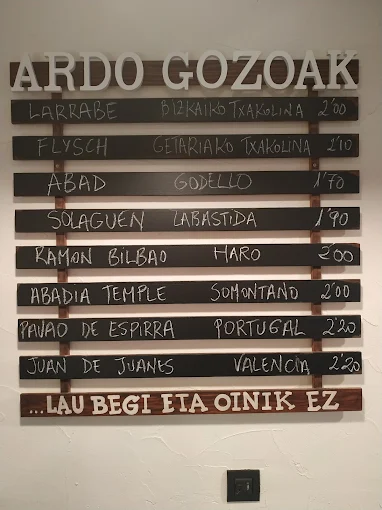 ARDO GOZOAK
LARRABE BIZKAIKO TXAKOLINA 2'00
FLYSCH GETARIAKO TXAKOLINA 2'10
ABAD GODELLO 1'70
SOLAGUEN LABASTIDA 1'90
RAMON BILBAO HARO 2'00
ABADIA TEMPLE SOMONTANO 2'00
PAVAO DE ESPIRRA PORTUGAL 2'20
JUAN DE JUANES VALENCIA 2'20
...LAU BEGI ETA OINIK EZ